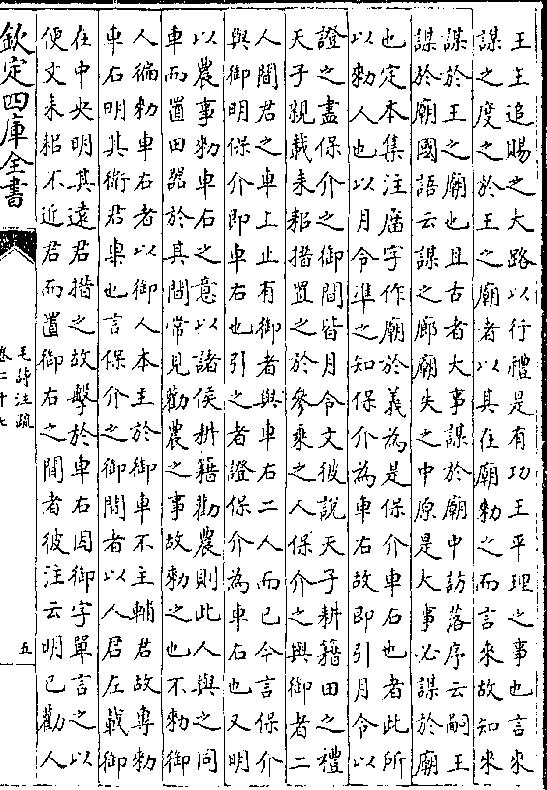 王王追賜之大路以行禮是有功王平理之事也言來
謀之度之於王之廟者以其在廟勑之而言來故知來
謀於王之廟也且古者大事謀於廟中訪落序云嗣王
謀於廟國語云謀之廊廟失之中原是大事必謀於廟
也定本集注廟字作廟於義為是保介車右也者此所
以勑人也以月令準之知保介為車右故即引月令以
證之盡保介之御間皆月令文彼說天子耕籍田之禮
天子親載耒耜措置之於參乘之人保介之與御者二
人間君之車上止有御者與車右二人而已今言保介
與御明保介即車右也引之者證保介為車右也又明
以農事勑車右之意以諸侯耕籍勸農則此人與之同
車而置田器於其間常見勸農之事故勑之也不勑御
人徧勑車右者以御人本主於御車不主輔君故專勑
車右明其衛君車也言保介之御間者以人君左載御
在中央明其遠君措之故繫於車右因御字單言之以
便文耒耜不近君而置御右之間者彼注云明已勸人
欽定四庫全書
毛詩注疏
卷二十七
五